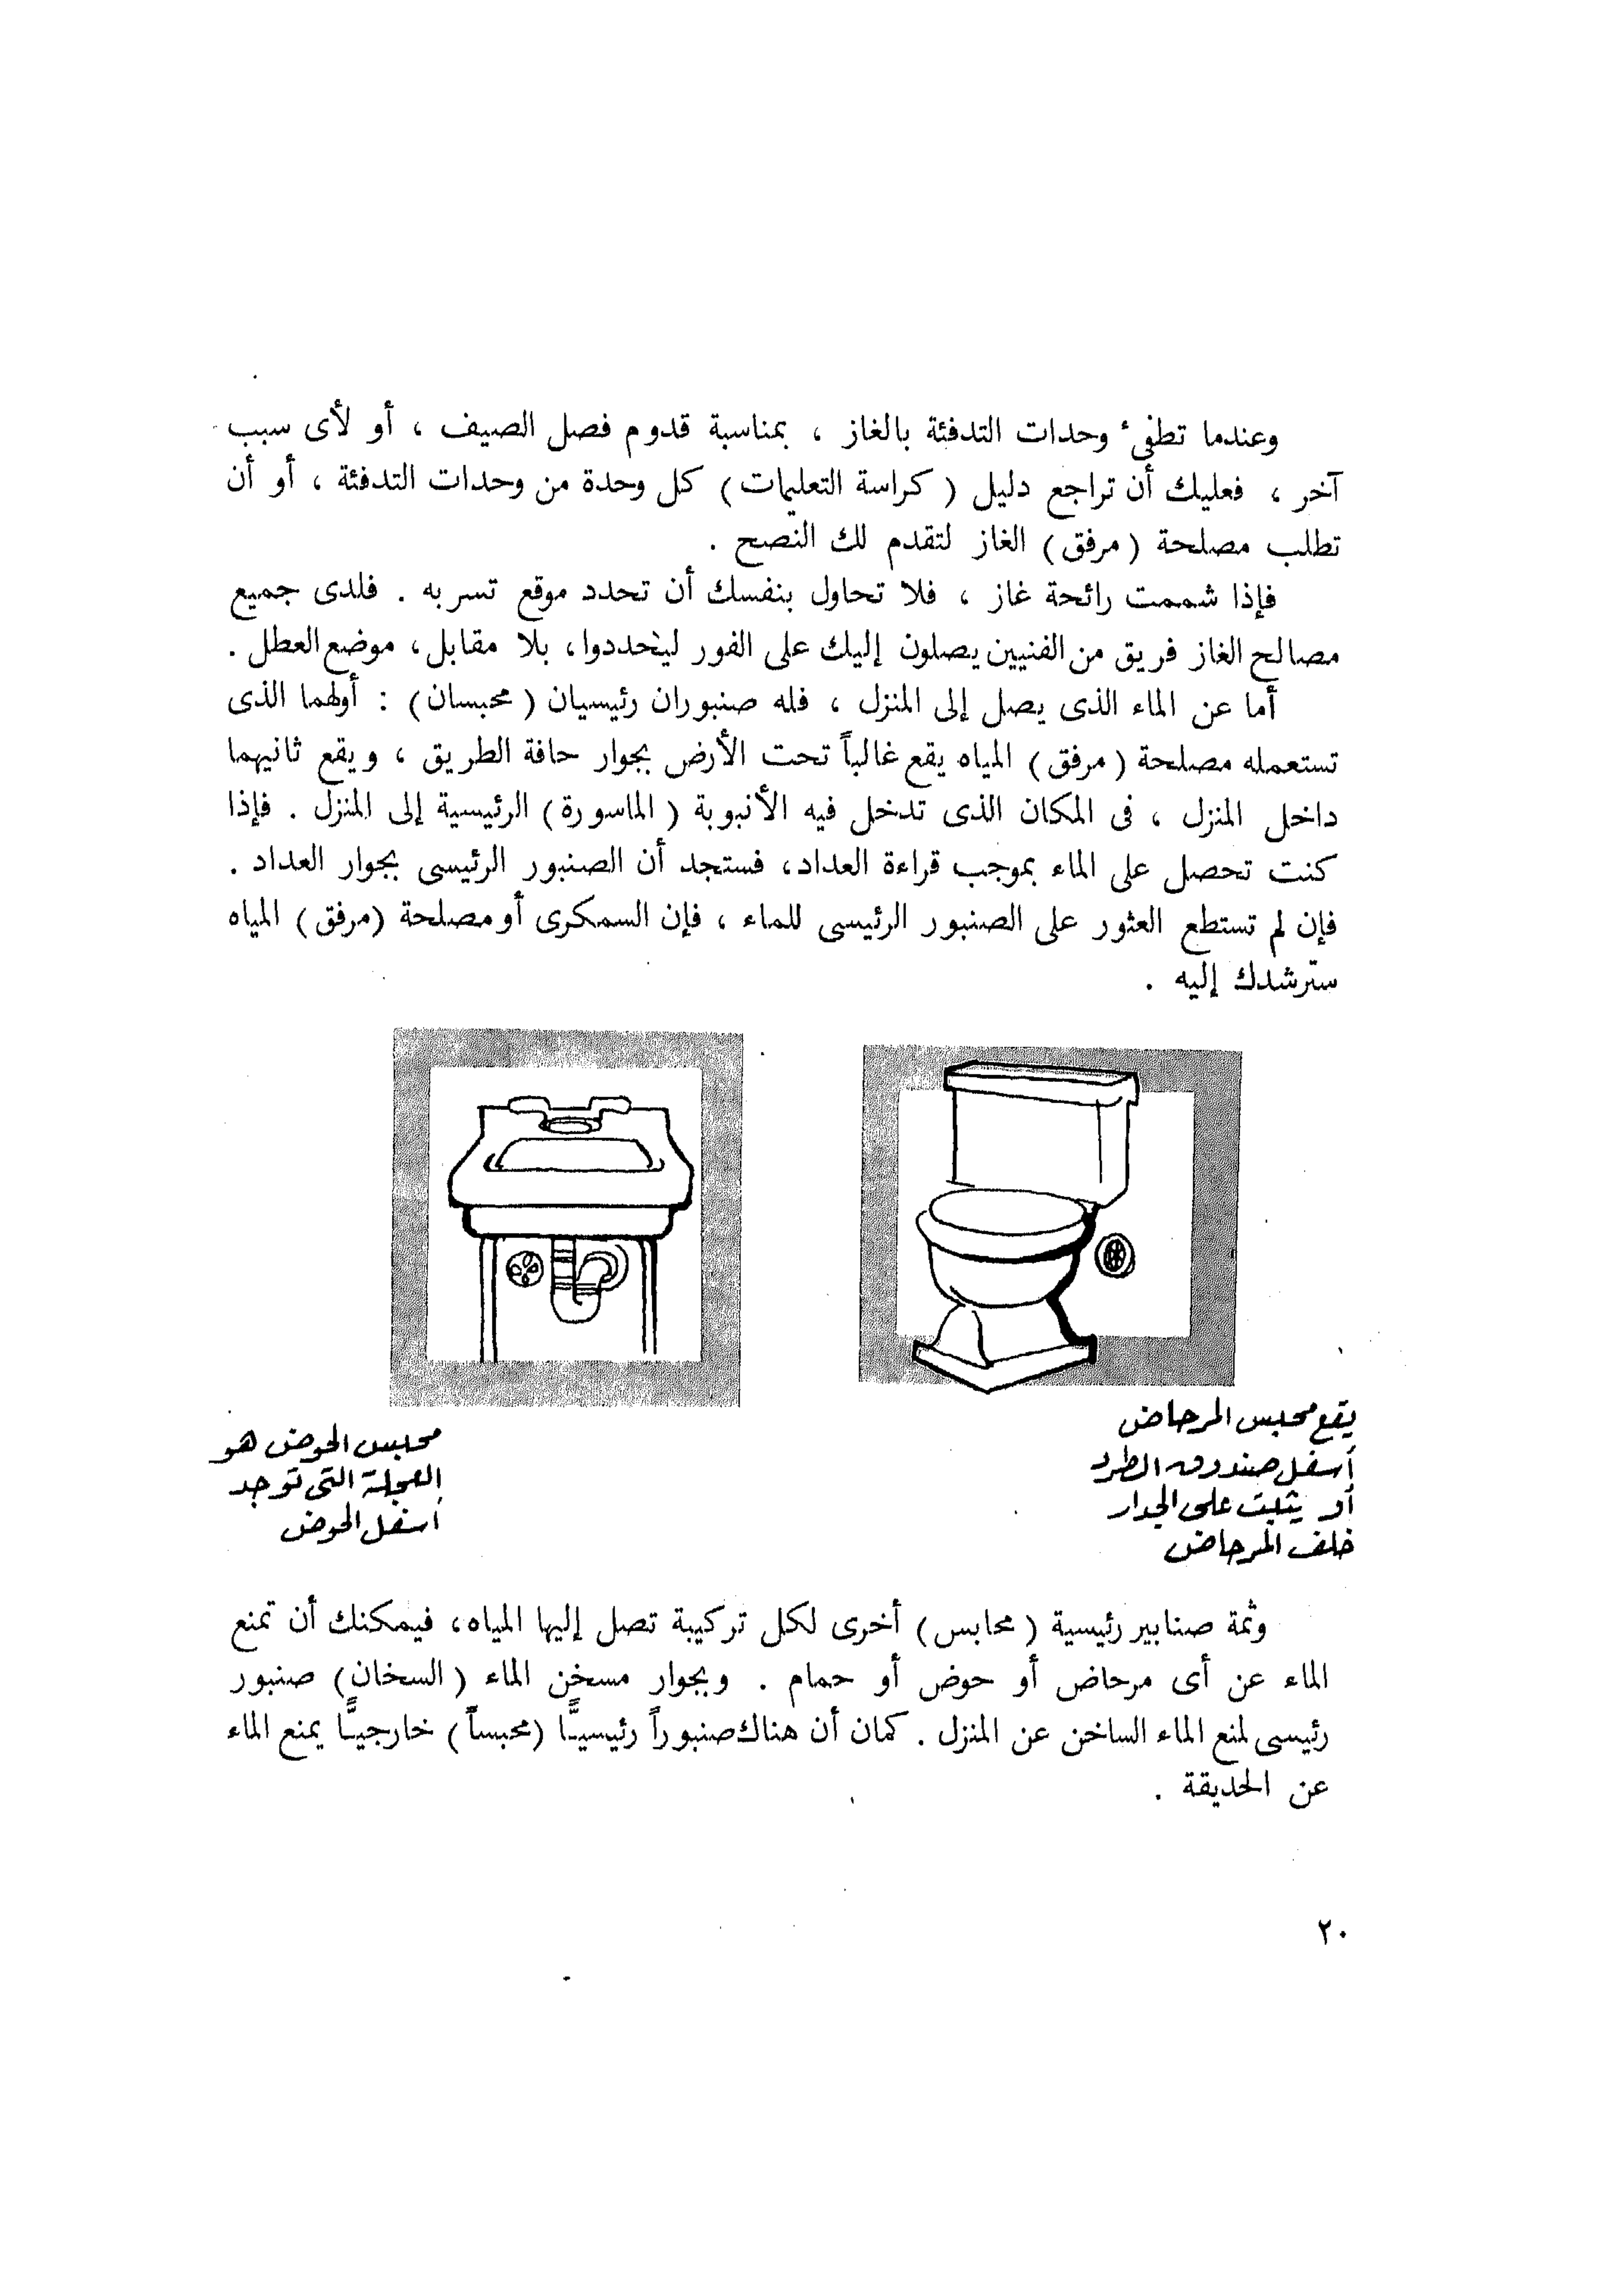 وعندما تطفئ وحدات التدفئة بالغاز ، بمناسبة قدوم فصل الصيف ، أو لأى سبب
آخر ، فعليك أن تراجع دليل ( كراسة التعليمات ) كل وحدة من وحدات التدفئة ، أو أن
تطلب مصلحة ( مرفق ) الغاز لتقدم لك النصح .
فإذا شممت رائحة غاز ، فلا تحاول بنفسك أن تحدد موقع تسربه . فلدى جميع
مصالح الغاز فريق من الفنيين يصلون إليك على الفور ليحددوا، بلا مقابل، موضع العطل .
أما عن الماء الذى يصل إلى المنزل ، فله صنبوران رئيسيان ( محبسان ) : أولهما الذى
تستعمله مصلحة ( مرفق ) المياه يقع غالباً تحت الأرض بجوار حافة الطريق ، ويقع ثانيهما
داخل المنزل ، فى المكان الذى تدخل فيه الأنبوبة ( الماسورة ) الرئيسية إلى المنزل . فإذا
كنت تحصل على الماء بموجب قراءة العداد، فستجد أن الصنبور الرئيسى بجوار العداد .
فإن لم تستطع العثور على الصنبور الرئيسى للماء ، فإن السمكرى أو مصلحة (مرفق) المياه
سترشدك إليه .
يقع محبس المرحاض
أسفل صندوق الطرد
أو يثبت على الجدار
خلف المرحاض
محبس الحوض هو
العجلة التى توجد
أسفل الحوض
وثمة صنابير رئيسية ( محابس ) أخرى لكل تركيبة تصل إليها المياه، فيمكنك أن تمنع
الماء عن أى مرحاض أو حوض أو حمام . وبجوار مسخن الماء ( السخان ) صنبور
رئيسى لمنع الماء الساخن عن المنزل . كمان أن هناك صنبوراً رئيسيًّا (محبساً ) خارجيًّا يمنع الماء
عن الحديقة .
٢٠